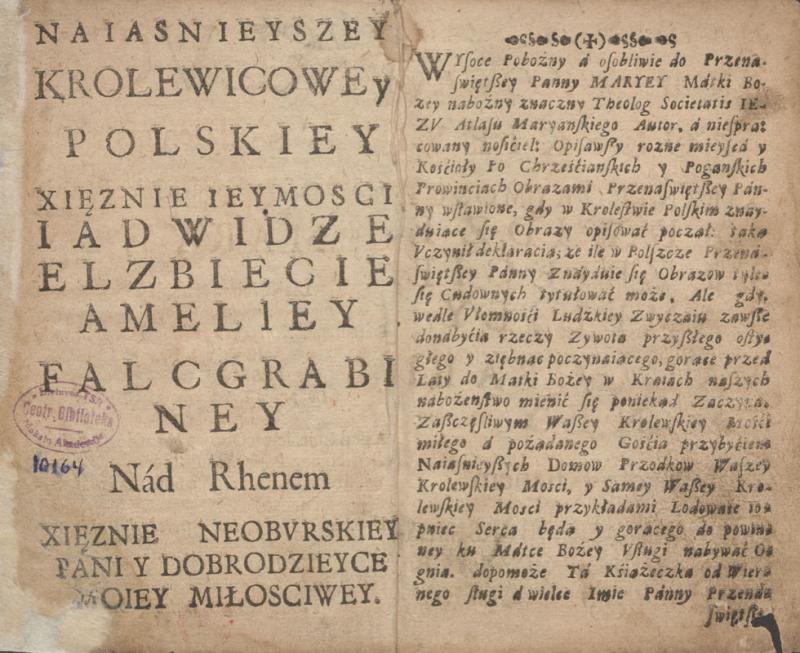 NAIASNIEYSZEY
KROLEWICOWEy
POLSKIEY
XIĘZNIE IEYMOSCI
IADWIDZE
ELZBIECIE
AMELIEY
FALCGRABI
NEY
Nád Rhenem
XIĘZNIE NEOBVRSKIEY
PANI Y DOBRODZIEYCE
MOIEY MIŁOSCIWEY.
Centr. Biblioteka
10164
WYſoce Pobożny á oſobliwie do Przena-
świętßey Panny MARYEY Mátki Bo-
zey nabożny znaczny Theolog Societatis IE-
ZV Atlaſu Maryanſkiego Autor, á nieſpra-
cowany noſićiel: Opiſawſſy rozne mieyſcá y
Kośćioły Po Chrześćiańſkich y Pogańſkich
Prowinciach Obrazami Przenaświętßey Pán-
ny wſławione, gdy w Kroleſtwie Polſkim znay-
duiące ſię Obrazy opiſować począł: táką
Vczynił deklaracią; że ile w Polſzcze Przená-
świętßey Pánny Znáyduie ſię Obrazow tyle
ſię Cudownych tytułować może. Ale gdy,
wedle Vłomnośći Ludzkiey Zwyczaiu zawſſe
do rzeczy Zywotá przyſſłego
głego y ziębnąc poczynaiącego, gorące przed
Láty do Matki Bożey w Kráiach naſzych
nabożeńſtwo mienić ſię poniekąd Zaczyna.
Zaßczęśliwym Waßey Krolewſkiey Mośći
miłego á pożądanego Gośćia przybyćiem
Naiaśnieyſſych Domow Przodkow Waſzey
Krolewſkiey Mosci, y Samey Waßey Kro-
lewſkiey Mosci przykłádámi Lodowate to-
pniec Serca będą y gorącego do powin-
ney ku Mátce Bożey Vſługi nabywáć O-
gnia. dopomoże Tá Kśiążeczká od Wier-
nego ſługi á wielce Imię Pánny Przená-
świętſſe-